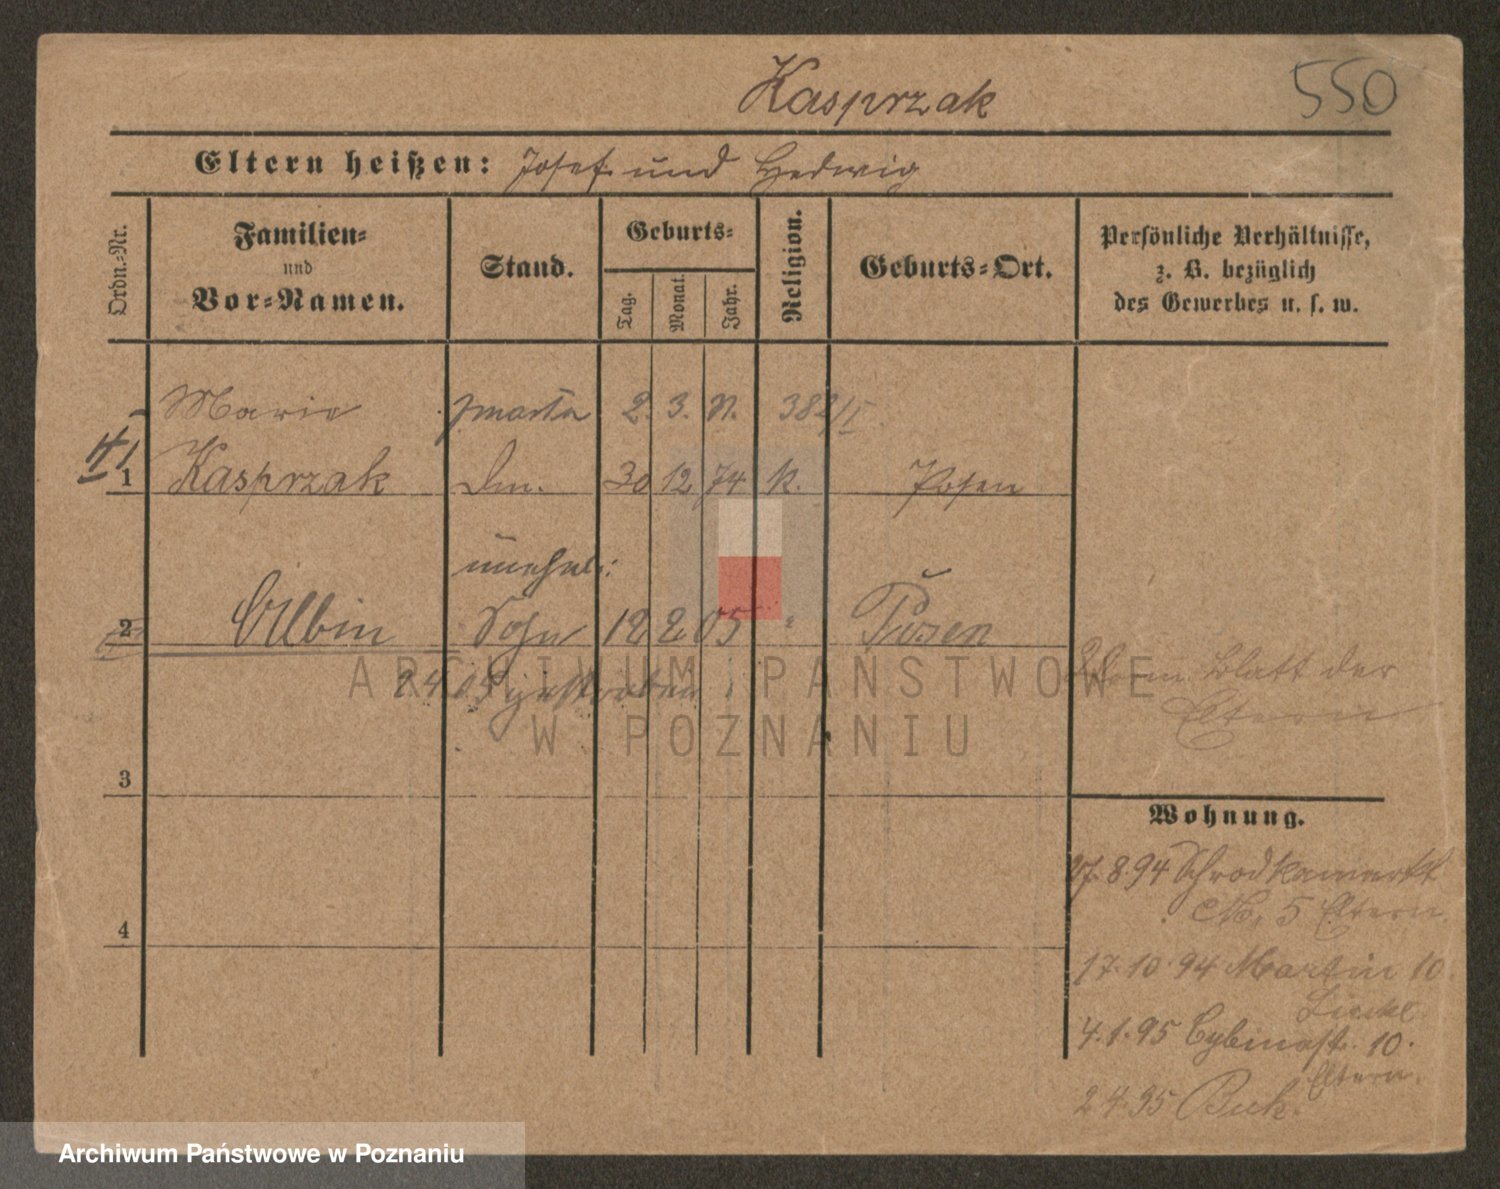 Kasprzak
550
Eltern heißen: Josef und Hedwig
Ordn.-Nr.
Familien-
und
Vor-Namen.
Stand.
Geburts-
Tag.
Monat.
Jahr.
Religion.
Geburts-Ort.
Persönliche Verhältnisse,
z. B. bezüglich
des Gewerbes u. s. w.
Marie 2. 3. N. 382/II
1 Kasprzak 30 12 74 K. Posen
unehel:
2 Albin Sohn 12 2 05 " Posen
2 4 05 gestorben
vom Blatt der
Eltern
3
Wohnung.
27.8.94 Schrodkamarkt
No. 5 Eltern
4
17.10.94 Martin 10
4.1.95 Cybinastr. 10.
Eltern.
2 4 95 Buk.
ARCHIWUM PAŃSTWOWE
W POZNANIU
Archiwum Państwowe w Poznaniu